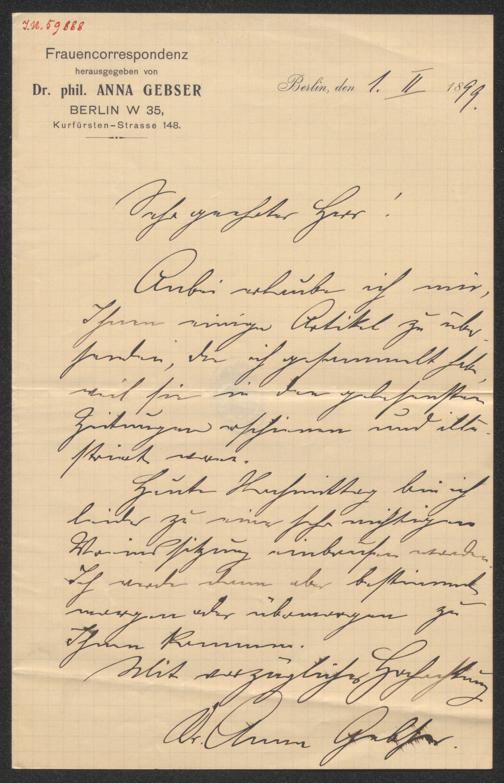 J.N. 59888
Frauencorrespondenz
herausgegeben von
Dr. phil. ANNA GEBSER
BERLIN W 35,
Kurfürsten-Strasse 148.
Berlin, den 1. II 1899.
Sehr geehrter Herr!
Anbei erlaube ich mir,
Ihnen einige Artikel zu über-
senden, die ich gesammelt habe,
weil sie in den gelesensten
Zeitungen erschienen und illu-
striert waren.
Heute Nachmittag bin ich
leider zu einer sehr wichtigen
Vereinssitzung einberufen worden
Ich werde dann aber bestimmt
morgen oder übermorgen zu
Ihnen kommen.
Mit vorzüglicher Hochachtung
Dr. Anna Gebser.